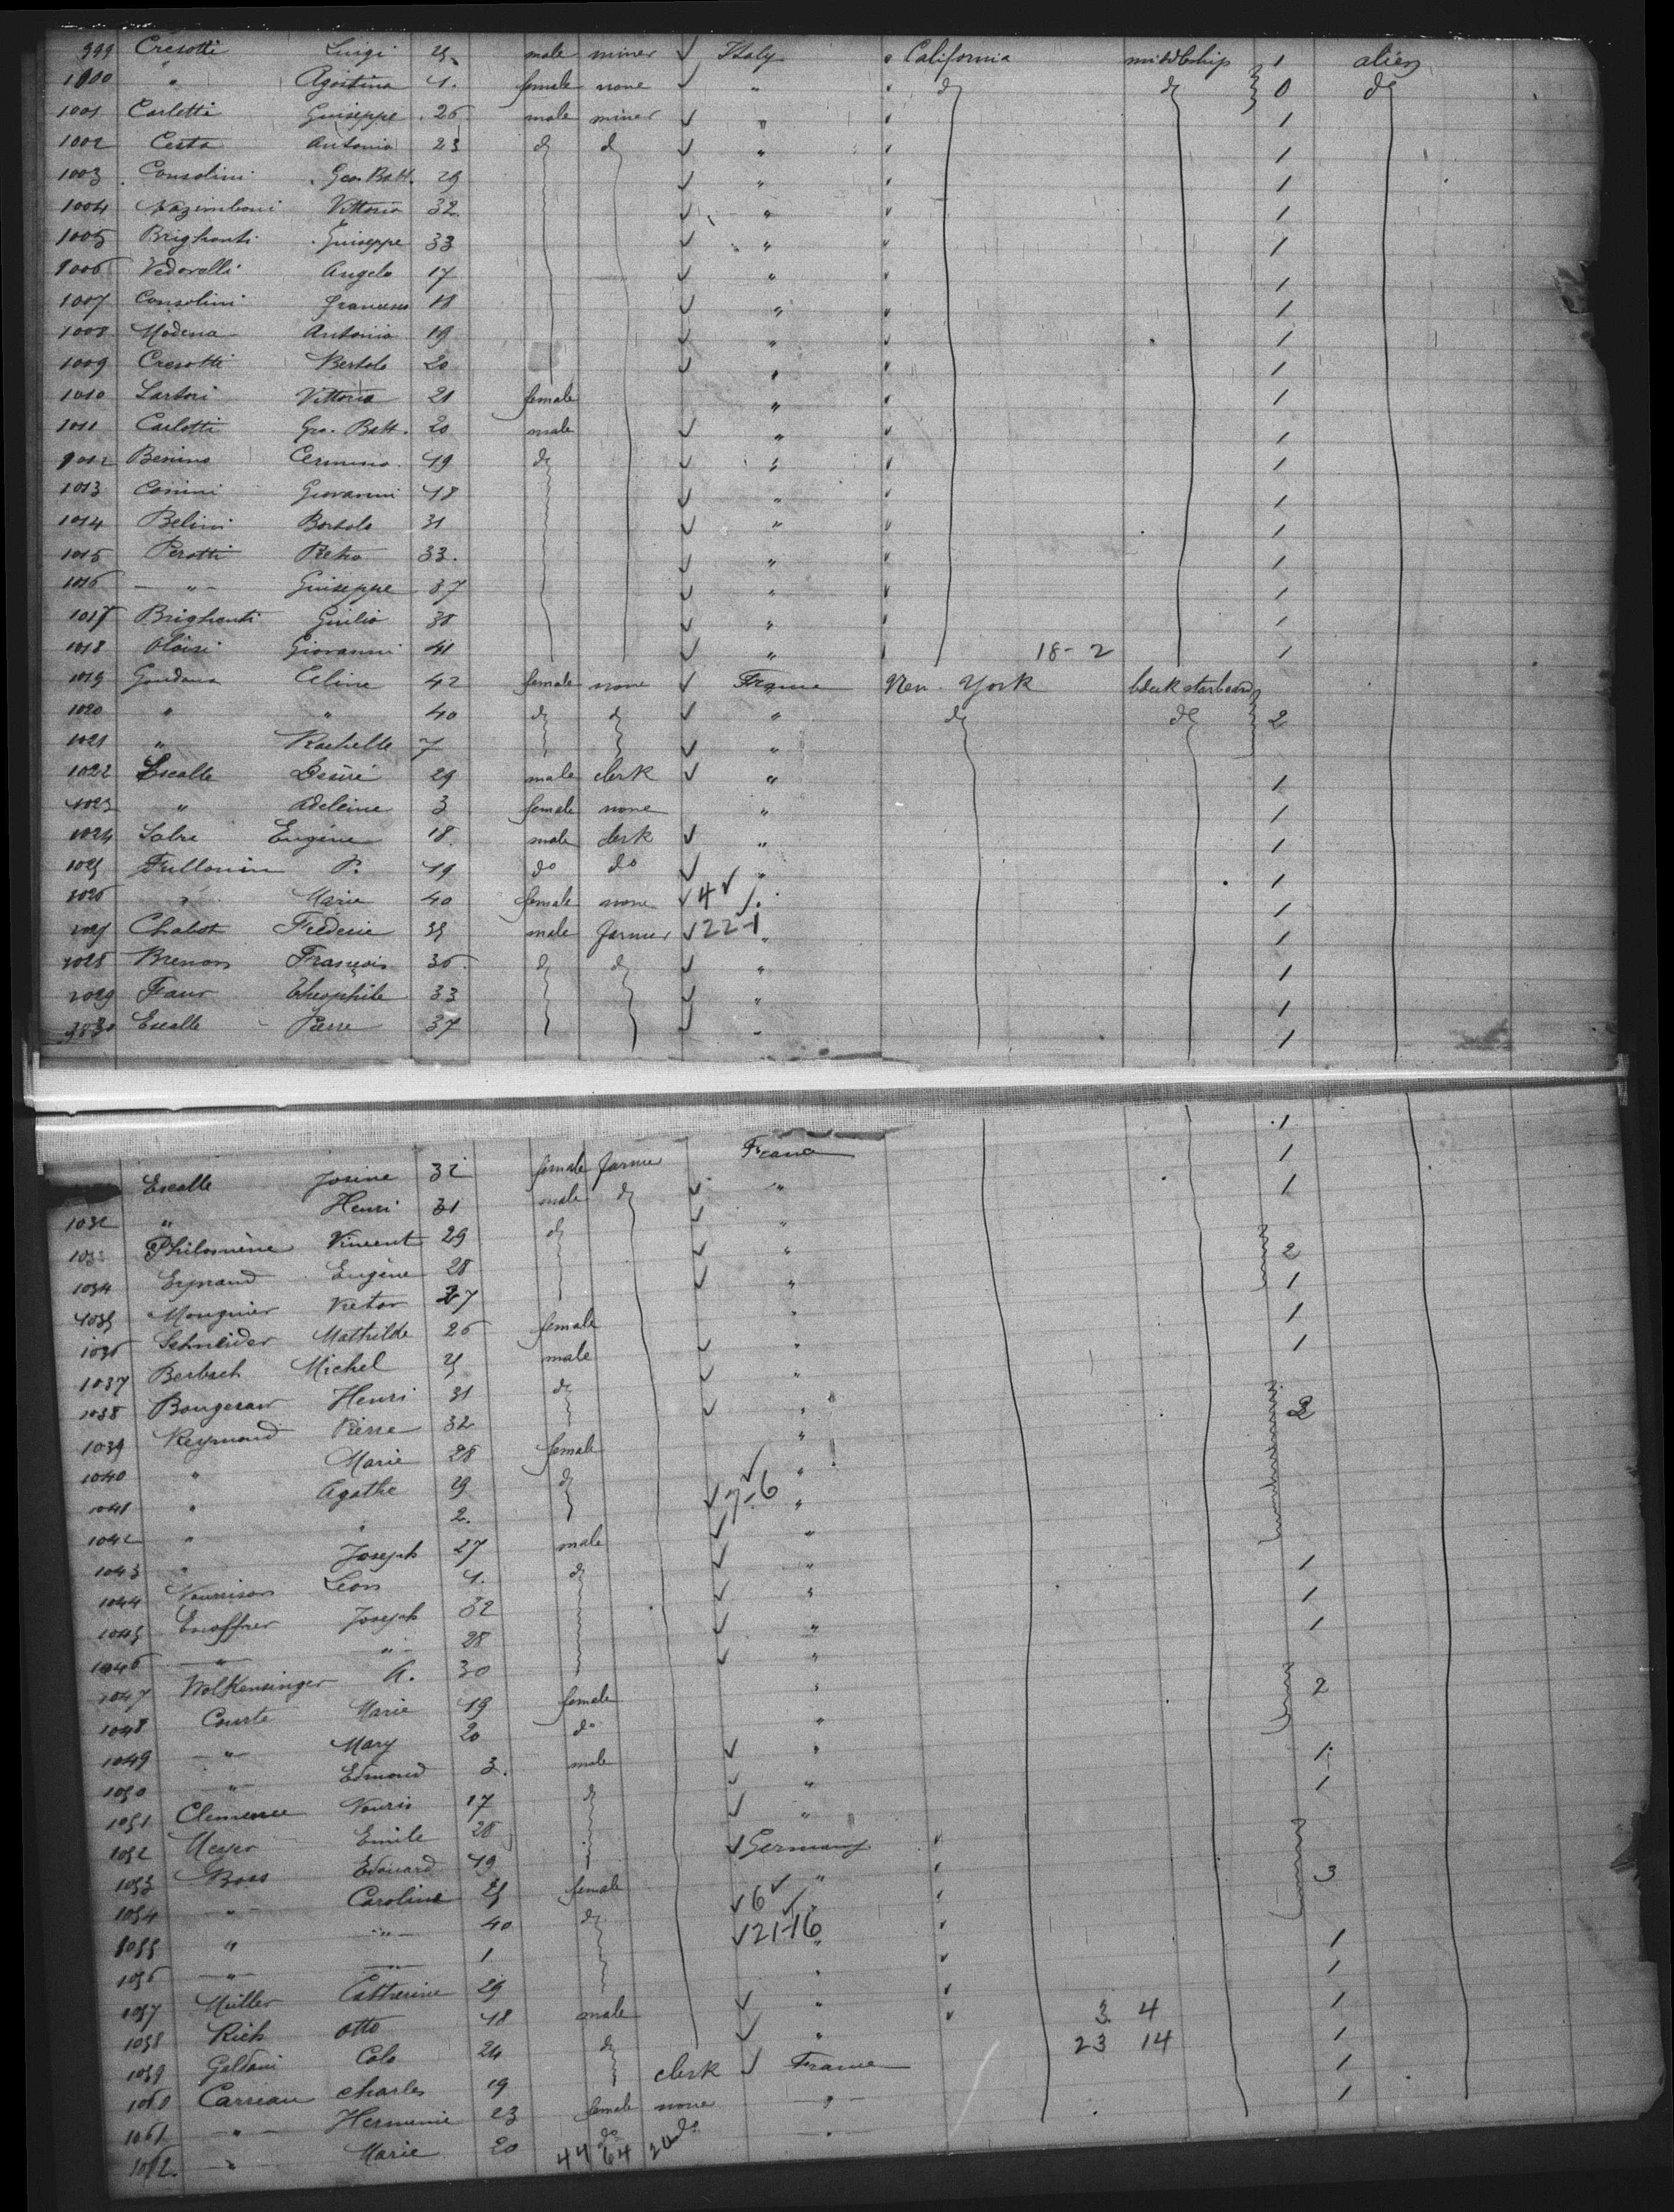 999 Cresotti Luigi 25 male miner ✓ Italy " California middleship 1 alien
1000 " Agostina 4. female none ✓ " " do do 0 do
1001 Carlotti Guiseppe 26 male miner ✓ " " 1
1002 Certa Antonio 23 do do ✓ " " 1
1003 Consolini Geo. Batt. 29 ✓ " " 1
1004 Vittorio 32 ✓ " " 1
1005 Brighenti Guiseppe 33 ✓ " " 1
1006 Vedovelli Angelo 17 ✓ " " 1
1007 Consolini Francesco 18 ✓ " " 1
1008 Modena Antonio 19 ✓ " " 1
1009 Cresotti Bertolo 20 ✓ " " 1
1010 Sartori Vittoria 21 female " " 1
1011 Carlotti Gio. Batt. 20 male ✓ " " 1
1012 Benino 19 do ✓ " " 1
1013 Conini Giovanni 18 ✓ " " 1
1014 Belini Bortolo 31 ✓ " " 1
1015 Perotti Pietro 33. ✓ " " 1
1016 " Guiseppe 37 ✓ " " 1
1017 Brighenti Giulio 38 ✓ " " 1
1018 Giovanni 41 ✓ " " 18-2 1
1019 Celine 42 female none ✓ France New York
1020 " " 40 do do ✓ " do do 2
1021 " Rachelle 7 ✓ "
1022 Escalle Desiré 29 male clerk ✓ " 1
1023 " Adeleine 3 female none " 1
1024 Eugène 18. male clerk ✓ " 1
1025 P. 19 do do ✓ " 1
1026 " Marie 40 female none ✓ 4 ✓ 1
1027 Chabot Frederic 35 male farmer ✓ 22-1 " 1
1028 François 36. do do ✓ " 1
1029 Faur Theophile 33 ✓ " 1
1030 Escalle Pierre 37 ✓ " 1
Escalle Josine 32 female farmer France 1
1032 " Henri 31 male do ✓ " 1
1033 Philomène Vincent 29 do ✓ " 1
1034 Eymaud Eugène 28 ✓ " 2
1035 Mougnier Victor 27 ✓ " 1
1036 Schneider Mathilde 26 female " 1
1037 Berbach Michel 25 male ✓ " 1
1038 Henri 31 do ✓ "
1039 Reymond Pierre 32 ✓ " 2
1040 " Marie 28 female "
1041 " Agathe 29 do ✓ 7-6 "
1042 " " 2. "
1043 " Joseph 27 male ✓ "
1044 Nourrison Leon 4. do ✓ " 1
1045 Joseph 32 ✓ " 1
1046 " " 28 ✓ " 1
1047 Wolkensinger A. 30 ✓ "
1048 Courte Marie 19 female " 2
1049 " Mary 20 do "
1050 " Edmond 3. male ✓ " 1
1051 Clemence Nouris 17 do ✓ " 1
1052 Meyer Emile 28 ✓ "
1053 Boss Edouard 19 ✓ Germany "
1054 " Caroline 25 female " " 3
1055 " " 40 do ✓ 6 ✓ "
1056 " " 1 ✓ 21-16 "
1057 Müller Catherine 29 " " 1
1058 Rich Otto 18 male ✓ " " 1
1059 Galdani Calo 24 do ✓ " " 3. 4 1
1060 Carreau Charles 19 clerk ✓ France 23 14 1
1061 " Herminie 23 female none " 1
1062. " Marie 20 do do " 1
44 64